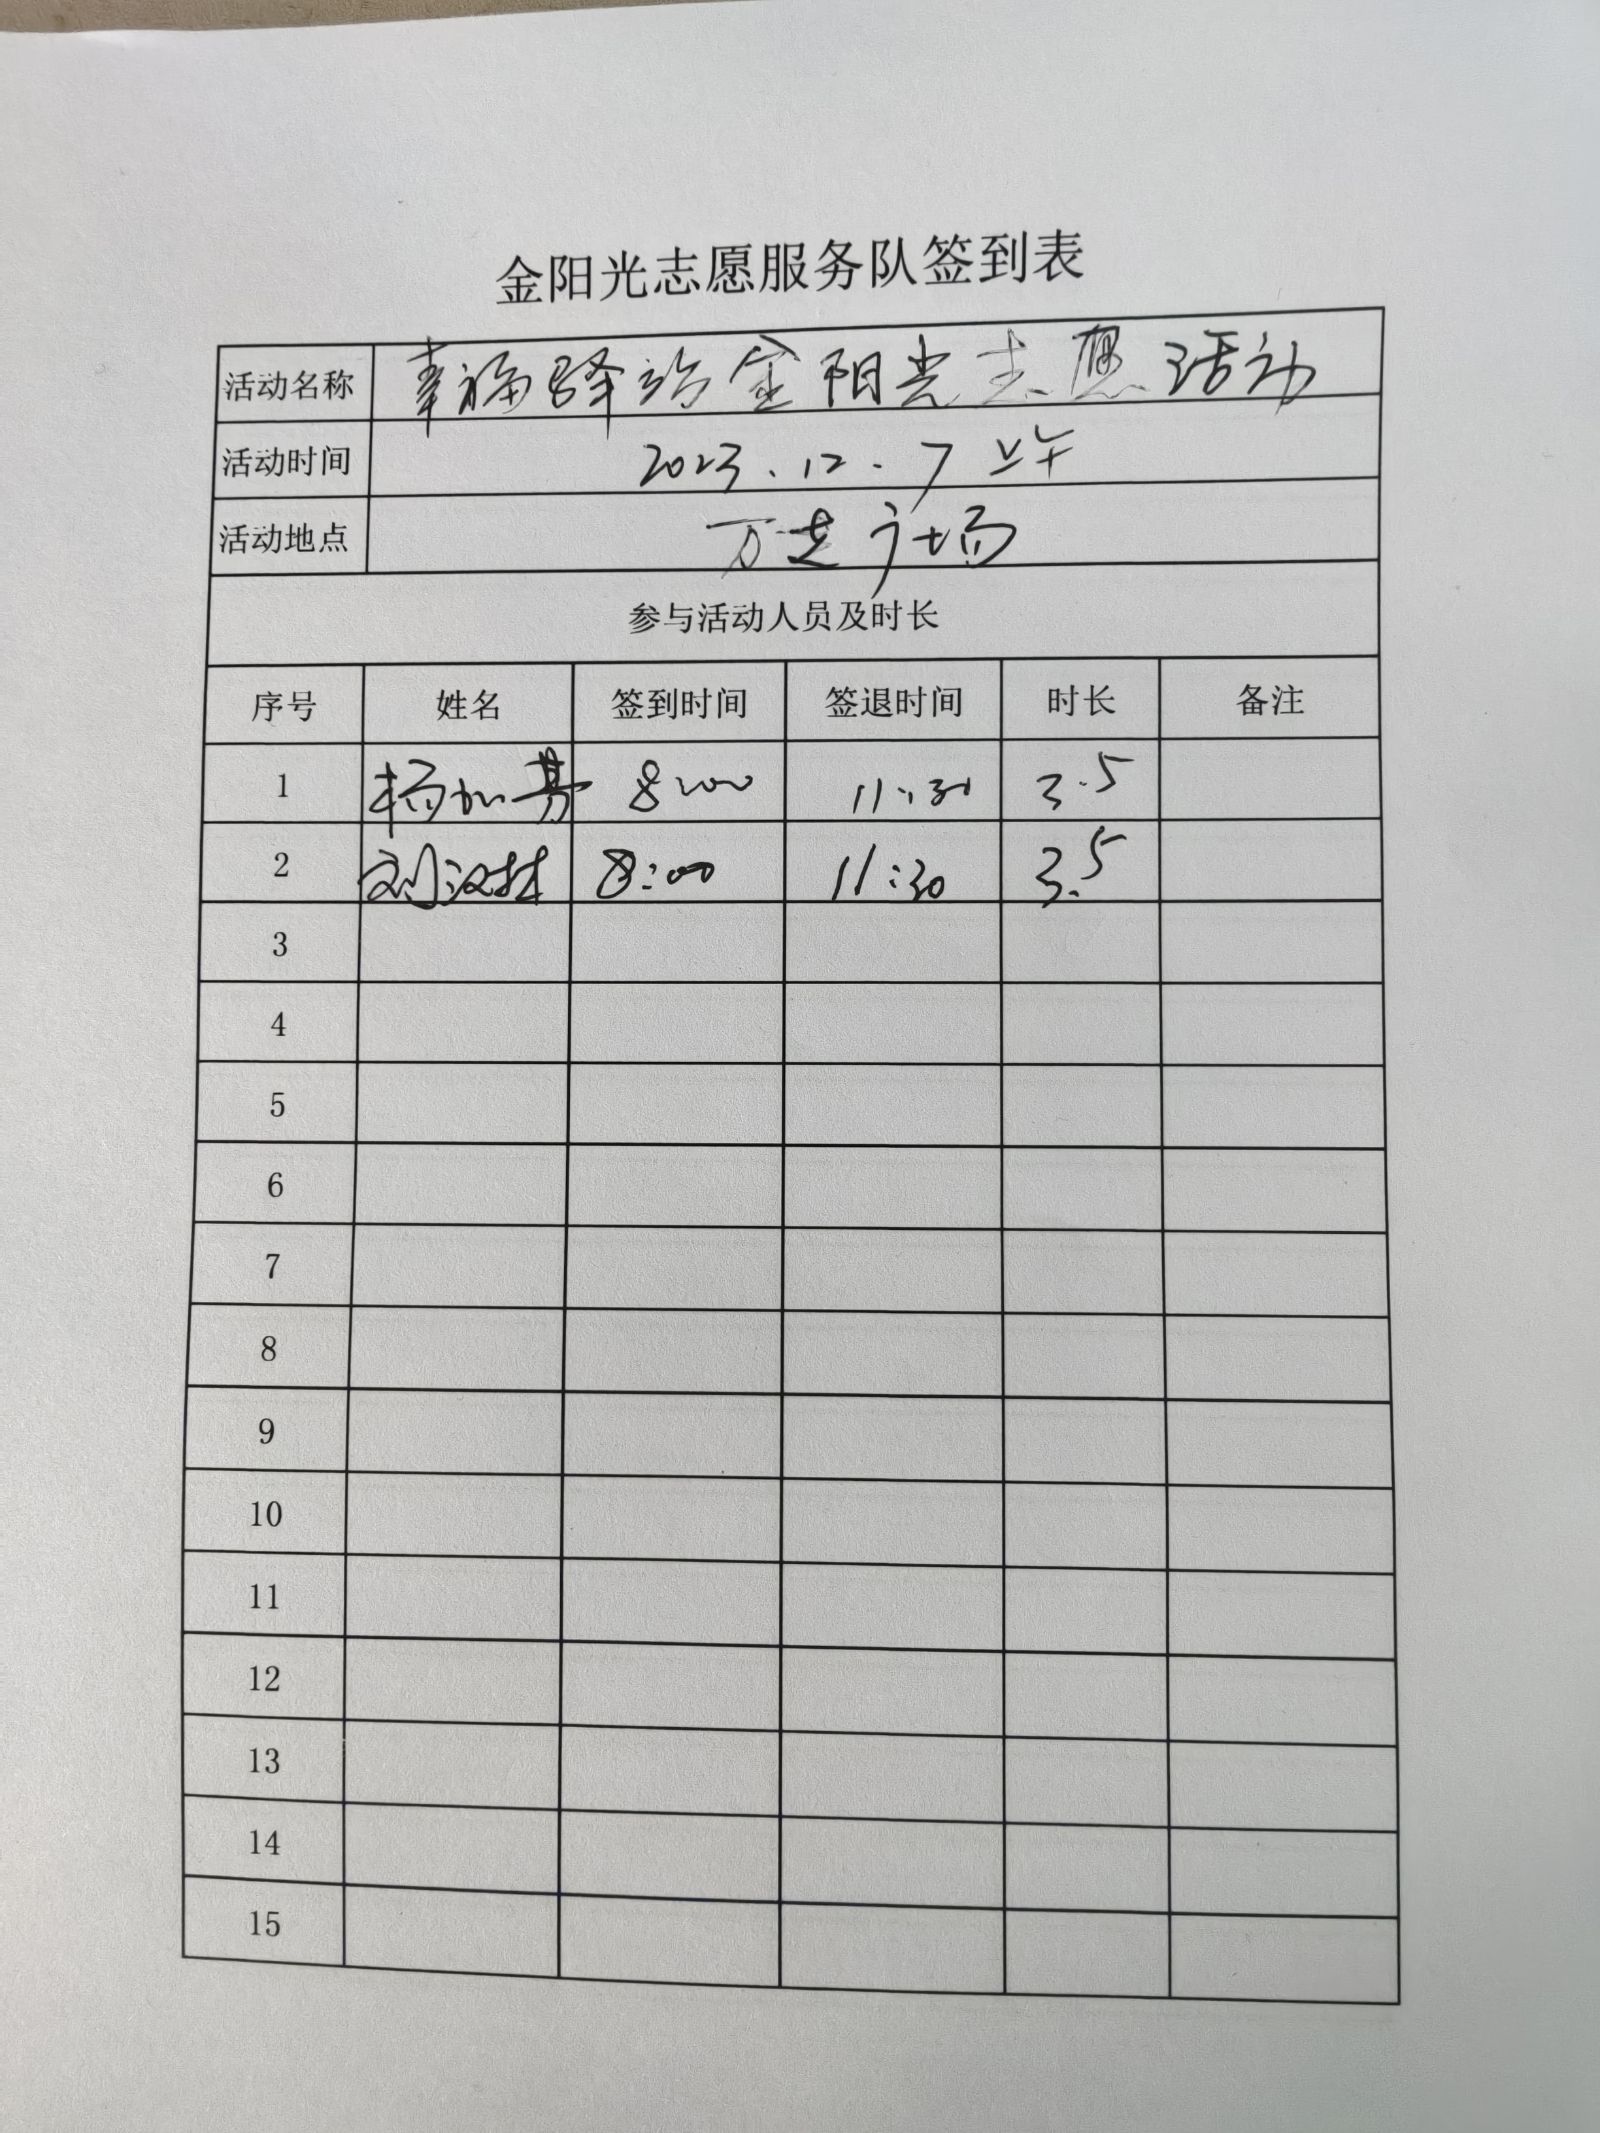 金阳光志愿服务队签到表
活动名称 幸福驿站金阳光志愿活动
活动时间 2023.12.7 上午
活动地点 万达广场
参与活动人员及时长
序号 姓名 签到时间 签退时间 时长 备注
1 杨 8:00 11:30 3.5
2 刘汉林 8:00 11:30 3.5
3
4
5
6
7
8
9
10
11
12
13
14
15